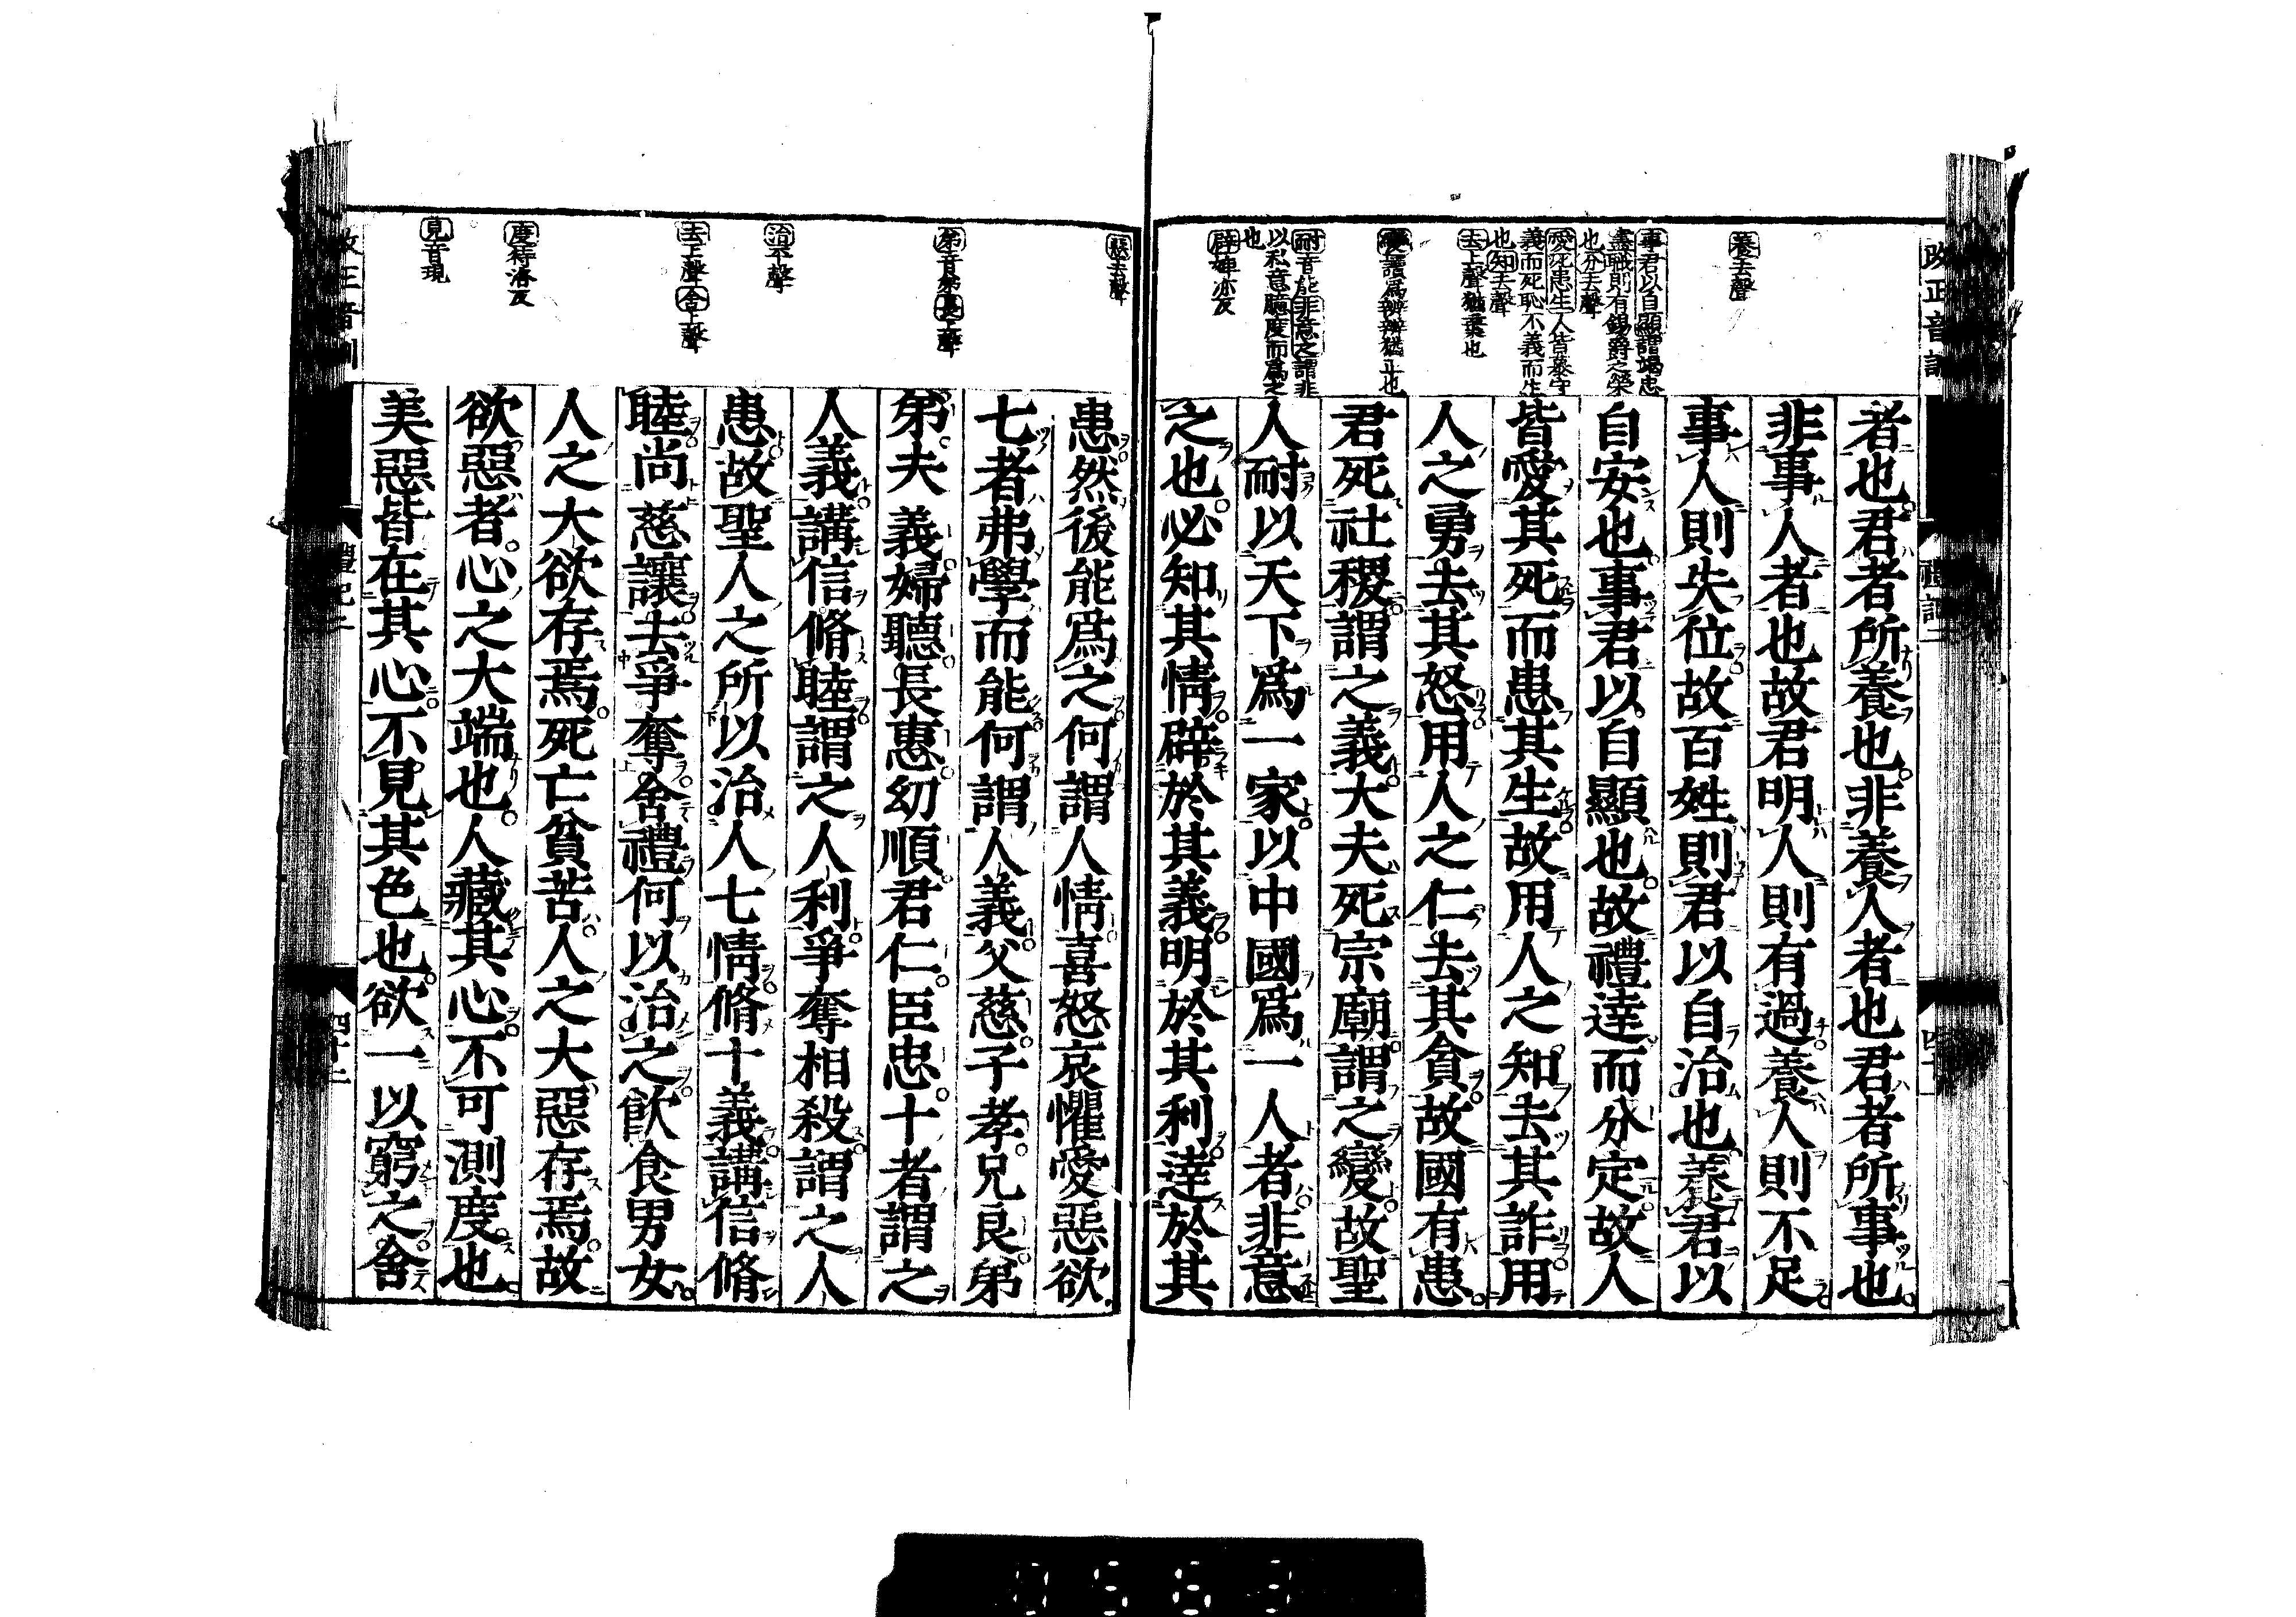 養去聲
事君以自顯謂竭忠
盡職則有錫爵之榮
也分去聲
愛死患生人皆慕守
義而死恥不義而生
也知去聲
去上聲猶棄也
變讀爲辨辨猶正也
耐音能非意之謂非
以私意臆度而爲之
也
辟婢亦反
者也君者所養也非養人者也君者所事也
非事人者也故君明人則有過養人則不足
事人則失位故百姓則君以自治也養君以
自安也事君以自顯也故禮達而分定故人
皆愛其死而患其生故用人之知去其詐用
人之勇去其怒用人之仁去其貪故國有患
君死社稷謂之義大夫死宗廟謂之變故聖
人耐以天下爲一家以中國爲一人者非意
之也必知其情辟於其義明於其利達於其
惡去聲
弟音弟長上聲
治平聲
去上聲舍上聲
度待洛反
見音現
患然後能爲之何謂人情喜怒哀懼愛惡欲
七者弗學而能何謂人義父慈子孝兄良弟
弟夫義婦聽長惠幼順君仁臣忠十者謂之
人義講信脩睦謂之人利爭奪相殺謂之人
患故聖人之所以治人七情脩十義講信脩
睦尚慈讓去爭奪舍禮何以治之飮食男女
人之大欲存焉死亡貧苦人之大惡存焉故
欲惡者心之大端也人藏其心不可測度也
美惡皆在其心不見其色也欲一以窮之舍
改正音訓
禮記二
四十二
0563